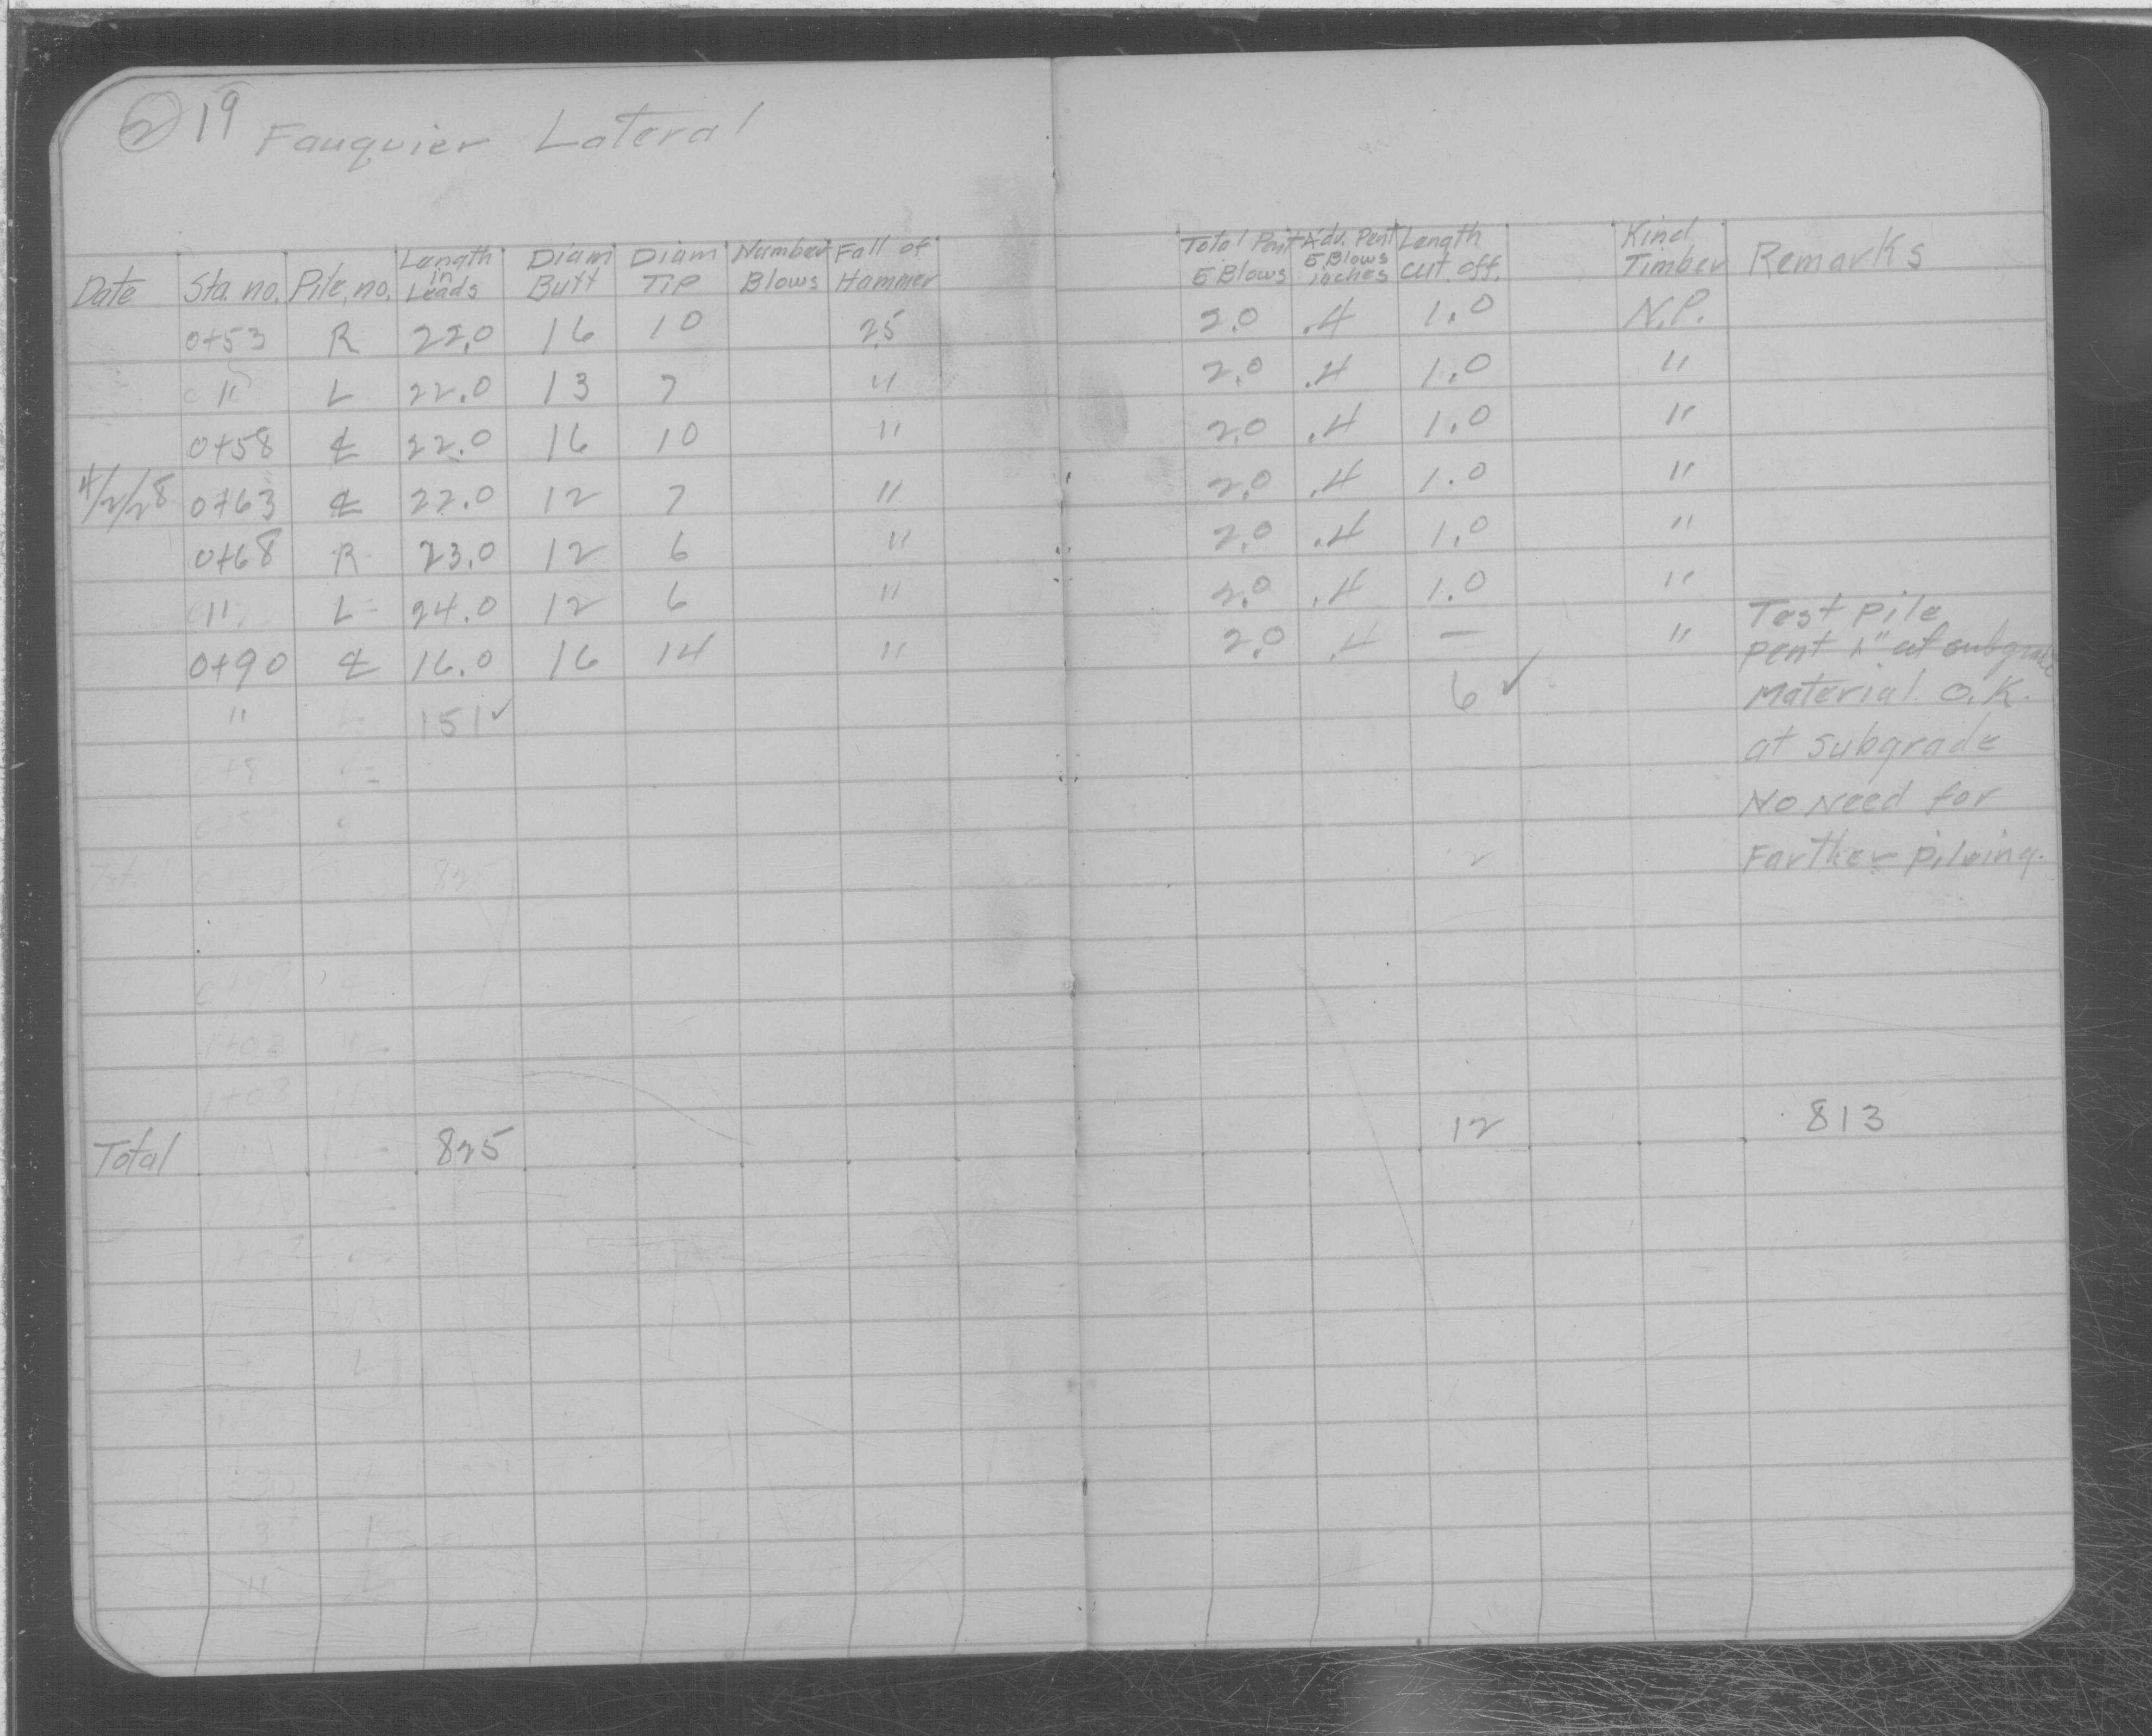 2 19 Fauquier Lateral
Date Sta. no. Pile. no. Length in Leads Diam Butt Diam Tip Number Blows Fall of Hammer Total Pent 5 Blows Adv. Pent 5 Blows inches Length cut off. Kind Timber Remarks
0+53 R 22.0 16 10 25 2.0 .4 1.0 N.P.
" L 22.0 13 7 " 2.0 .4 1.0 "
0+58 ℄ 22.0 16 10 " 2.0 .4 1.0 "
4/2/28 0+63 ℄ 22.0 12 7 " 2.0 .4 1.0 "
0+68 R 23.0 12 6 " 2.0 .4 1.0 "
" L 24.0 12 6 " 2.0 .4 1.0 " Test pile
0+90 ℄ 16.0 16 14 " 2.0 .4 — " pent 1" at subgrade
" L 151✓ 6 ✓ Material O.K.
at subgrade
No Need for
Farther Pileing.
Total 825 12 813